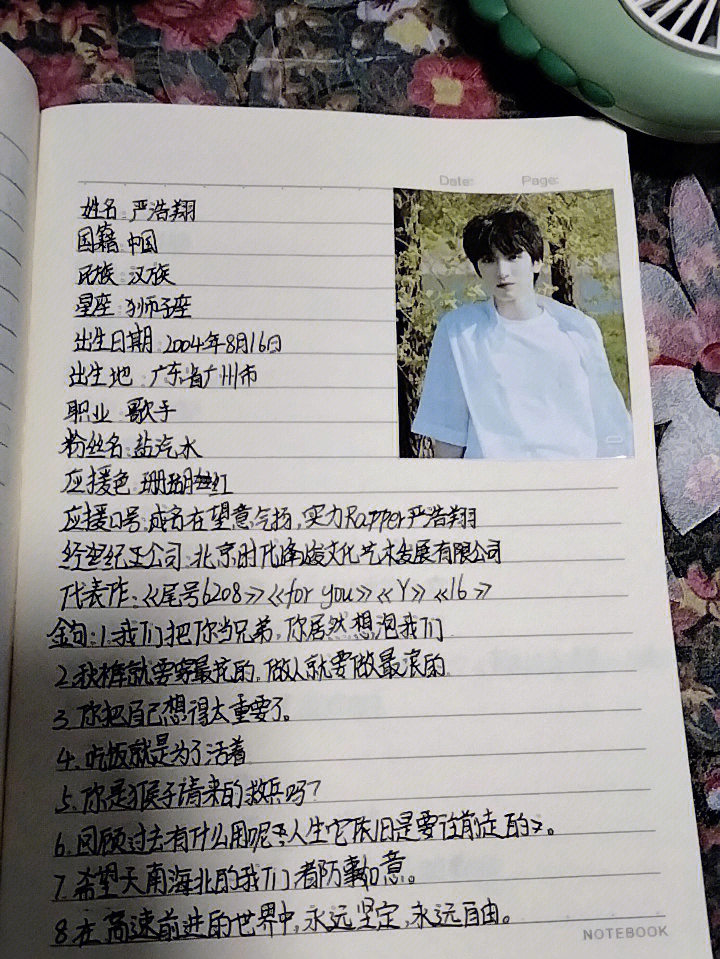 Date: Page:
姓名:严浩翔
国籍:中国
民族:汉族
星座:狮子座
出生日期:2004年8月16日
出生地:广东省广州市
职业:歌手
粉丝名:盐汽水
应援色:珊瑚红
应援口号:成名在望意气扬,实力Rapper严浩翔
经纪公司:北京时代峰峻文化艺术发展有限公司
代表作:《尾号6208》《for you》《Y》《16》
金句:1.我们把你当兄弟,你居然想泡我们
2.秋裤就要穿最花的,做人就要做最浪的
3.你把自己想得太重要了。
4.吃饭就是为了活着
5.你是猴子请来的救兵吗?
6.回顾过去有什么用呢,人生它依旧是要往前走的。
7.希望天南海北的我们都万事如意。
8.在高速前进的世界中,永远坚定,永远自由。
NOTEBOOK